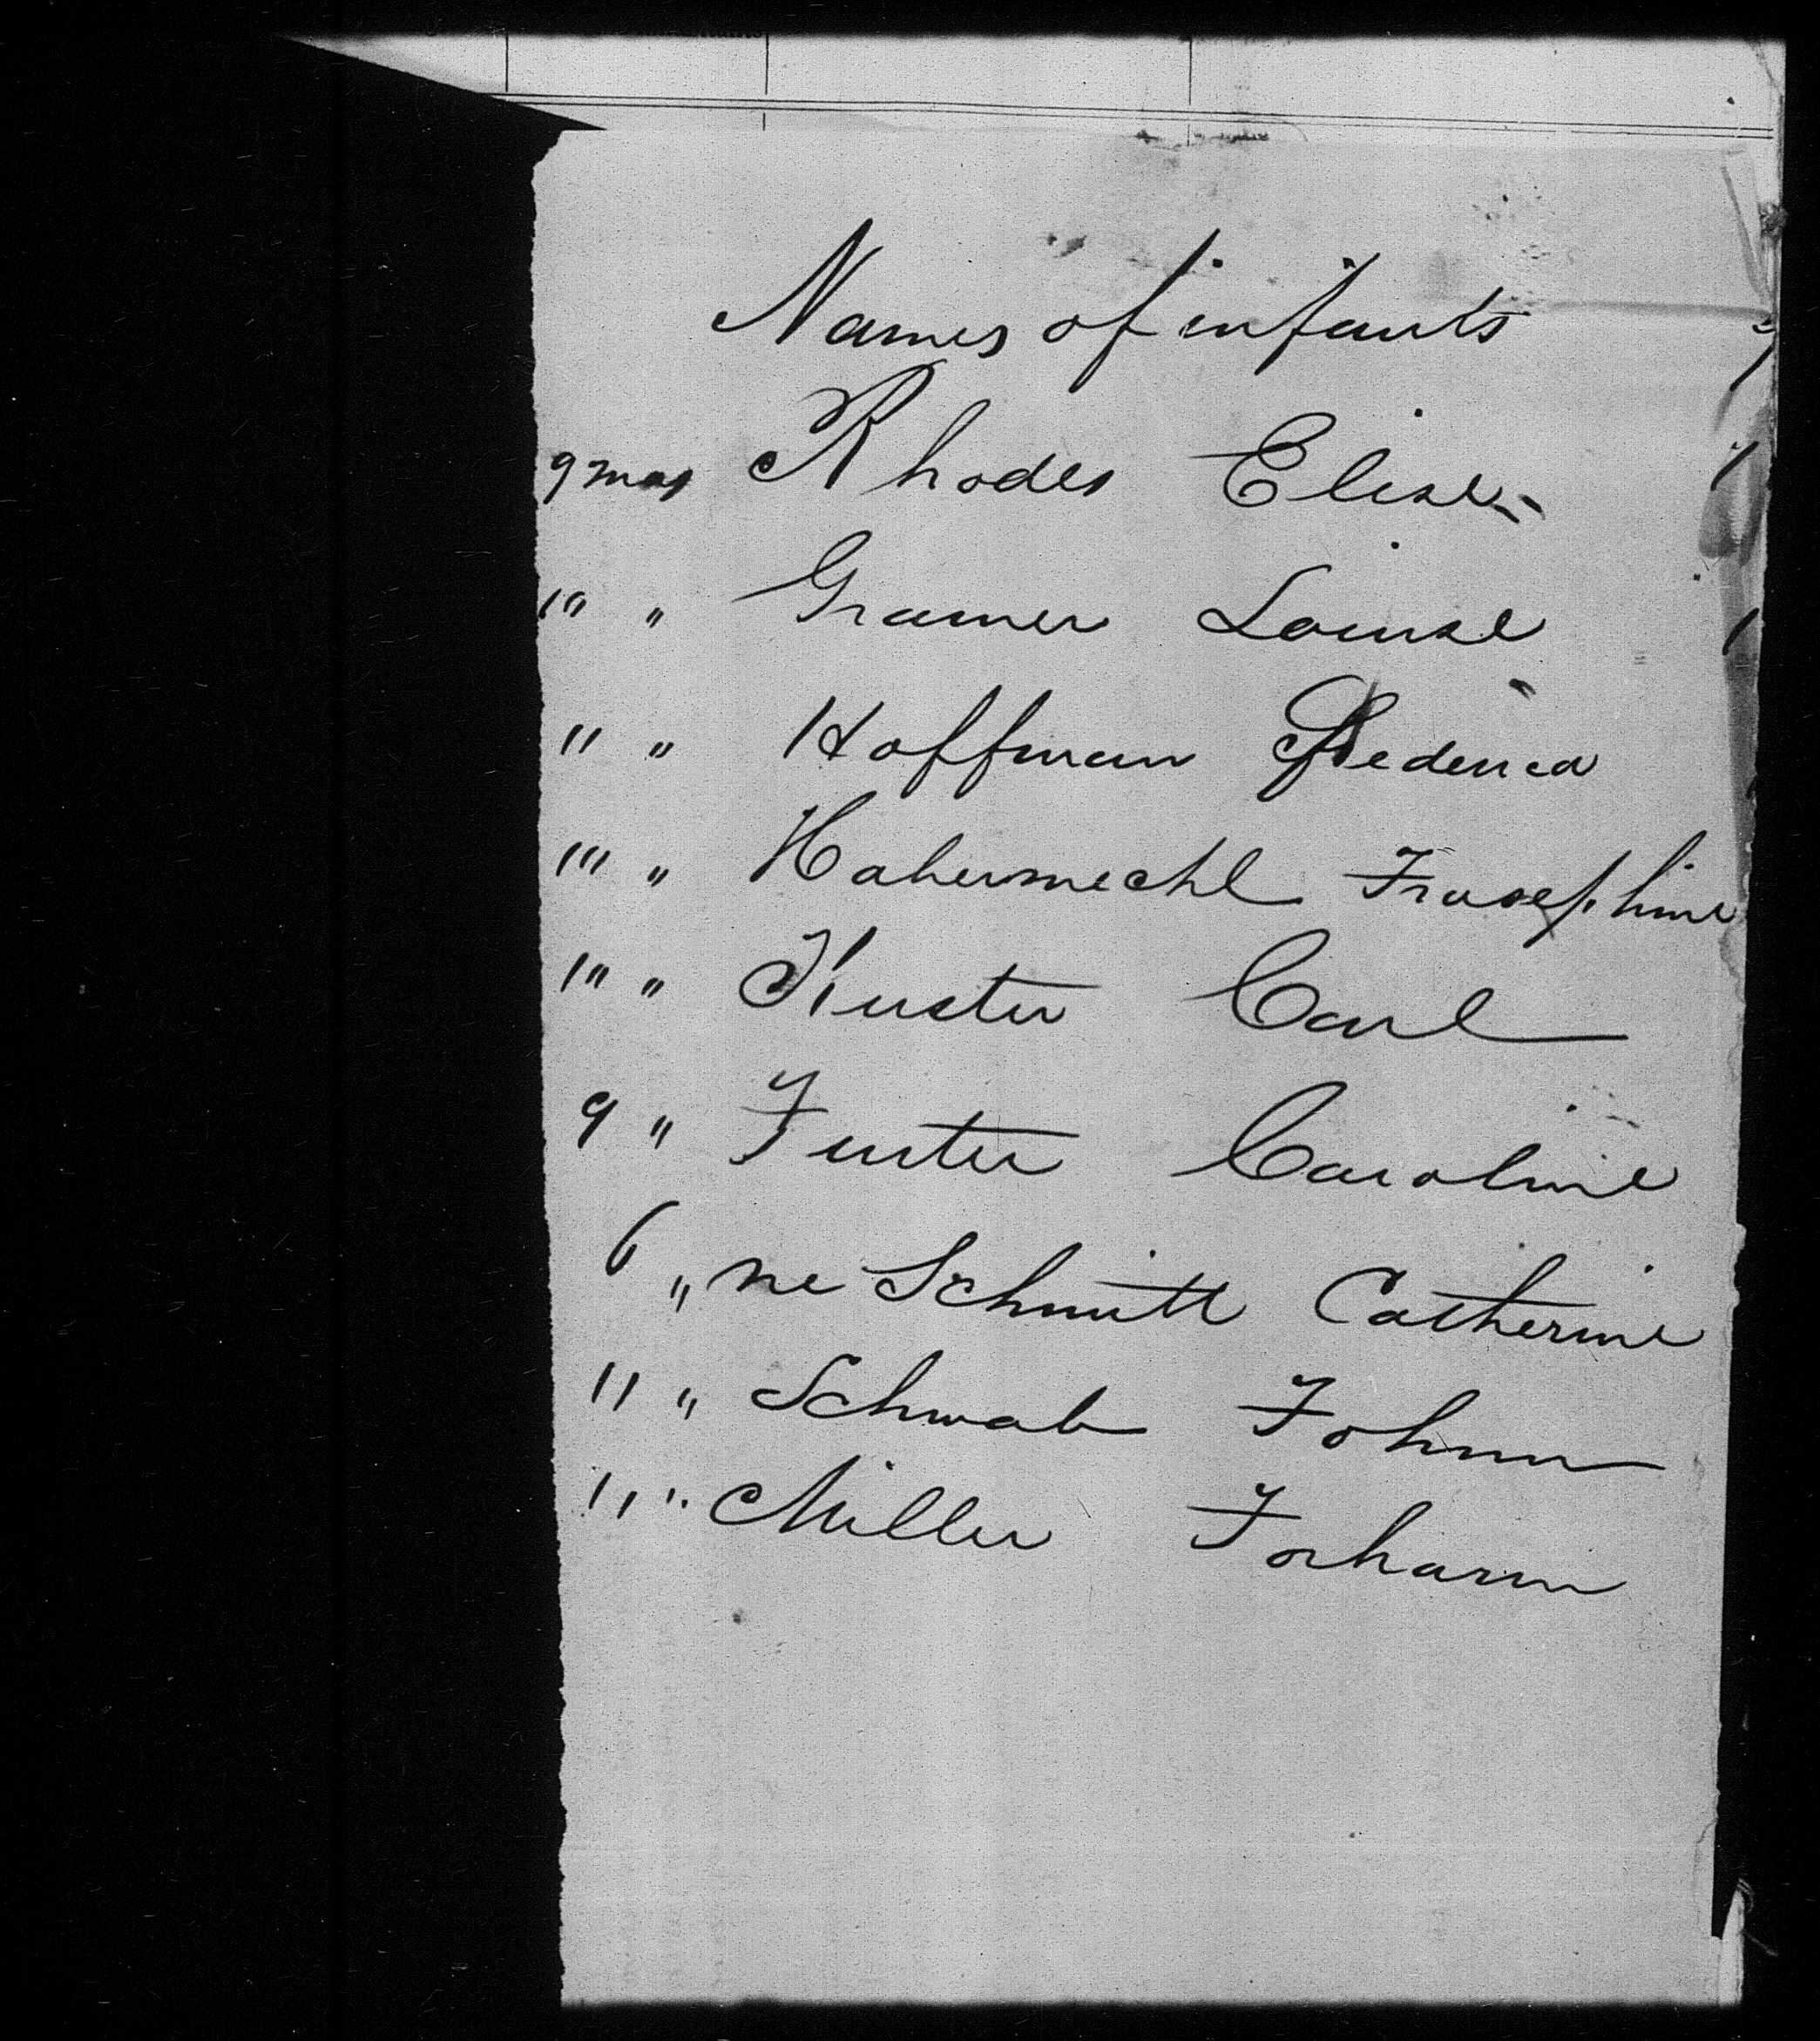 Names of infants
9 mos Rhodes Elise
" " Gramer Louise
11 " Hoffman Frederica
" " Josephine
" " Kuster Carl
9 " Furter Caroline
6 " ne Schmitt Catherine
11 " Schwab Johnn
11 " Miller Johann